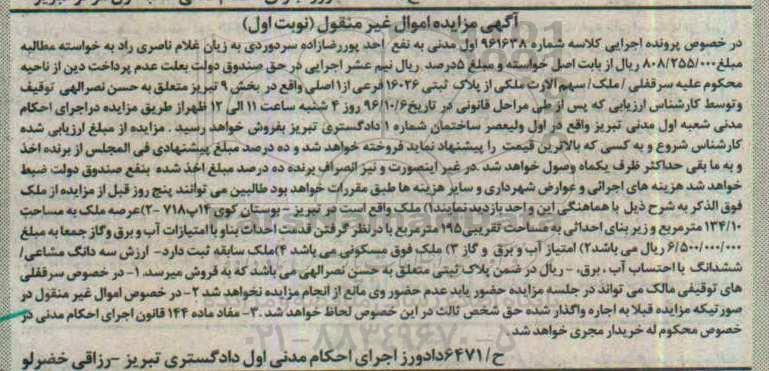 آگهی مزایده اموال غیر منقول (نوبت اول)
در خصوص پرونده اجرایی کلاسه شماره ۹۶۱۶۳۸ اول مدنی به نفع احد پوررضازاده سردرودی به زیان غلام ناصری راد به خواسته مطالبه
مبلغ ۸۰۸/۲۵۵/۰۰۰ ریال از بابت اصل خواسته و مبلغ ۵درصد ریال نیم عشر اجرایی در حق صندوق دولت بعلت عدم پرداخت دین از ناحیه
محکوم علیه سرقفلی / ملک/ سهم الارث ملکی از پلاک ثبتی ۱۶۰۲۶ فرعی از ۱ اصلی واقع در بخش ۹ تبریز متعلق به حسن نصرالهی توقیف
وتوسط کارشناس ارزیابی که پس از طی مراحل قانونی در تاریخ ۹۶/۱۰/۶ روز ۴ شنبه ساعت ۱۱ الی ۱۲ ظهر از طریق مزایده در اجرای احکام
مدنی شعبه اول مدنی تبریز واقع در اول ولیعصر ساختمان شماره ۱ دادگستری تبریز بفروش خواهد رسید . مزایده از مبلغ ارزیابی شده
کارشناس شروع و به کسی که بالاترین قیمت را پیشنهاد نماید فروخته خواهد شد و ده درصد مبلغ پیشنهادی فی المجلس از برنده اخذ
و به ما بقی حداکثر ظرف یکماه وصول خواهد شد .در غیر اینصورت و نیز انصراف برنده ده درصد مبلغ اخذ شده بنفع صندوق دولت ضبط
خواهد شد هزینه های اجرائی و عوارض شهرداری و سایر هزینه ها طبق مقررات خواهد بود طالبین می توانند پنج روز قبل از مزایده از ملک
فوق الذکر به شرح ذیل با هماهنگی این واحد بازدید نمایند ۱) ملک واقع است در تبریز - بوستان کوی ۱۴ پ ۷۱۸ -۲) عرصه ملک به مساحت
۱۳۴/۱۰ مترمربع و زیر بنای احداثی به مساحت تقریبی ۱۹۵ متر مربع با در نظر گرفتن قدمت احداث بنا و با امتیازات آب و برق وگاز جمعا به مبلغ
۶/۵۰۰/۰۰۰/۰۰۰ ریال می باشد ۲) امتیاز آب و برق و گاز ۳) ملک فوق مسکونی می باشد ۴) ملک سابقه ثبت دارد- ارزش سه دانگ مشاعی/
ششدانگ با احتساب آب ، برق، - ریال در ضمن پلاک ثبتی متعلق به حسن نصرالهی می باشد که به فروش میرسد. ۱- در خصوص سرقفلی
های توقیفی مالک می تواند در جلسه مزایده حضور یابد عدم حضور وی مانع از انجام مزایده نخواهد شد ۲- در خصوص اموال غیر منقول در
صورتیکه مزایده قبلا به اجاره واگذار شده حق شخص ثالث در این خصوص لحاظ خواهد شد .۳- مفاد ماده ۱۴۴ قانون اجرای احکام مدنی در
خصوص محکوم له خریدار مجری خواهد شد.
ح/۶۴۷۱ دادورز اجرای احکام مدنی اول دادگستری تبریز -رزاقی خضرلو
۰۲۱-۸۸۳۴۹۶۷۰-۵